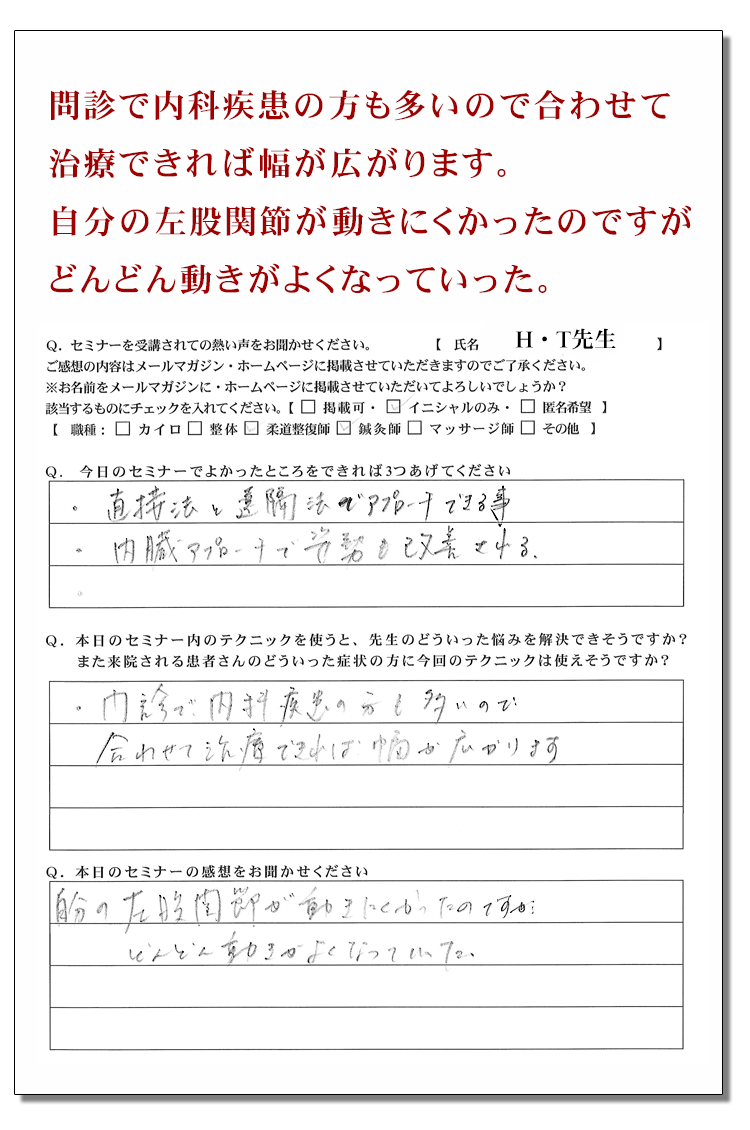 問診で内科疾患の方も多いので合わせて
治療できれば幅が広がります。
自分の左股関節が動きにくかったのですが
どんどん動きがよくなっていった。
Q. セミナーを受講されての熱い声をお聞かせください。 【 氏名 H・T先生 】
ご感想の内容はメールマガジン・ホームページに掲載させていただきますのでご了承ください。
※お名前をメールマガジンに・ホームページに掲載させていただいてよろしいでしょうか？
該当するものにチェックを入れてください。【 □ 掲載可・ ☑ イニシャルのみ・ □ 匿名希望 】
【 職種： □ カイロ □ 整体 ☑ 柔道整復師 ☑ 鍼灸師 □ マッサージ師 □ その他 】
Q. 今日のセミナーでよかったところをできれば3つあげてください
・ 直接法と遠隔法でアプローチできる事
・ 内臓アプローチで姿勢も改善される、
Q. 本日のセミナー内のテクニックを使うと、先生のどういった悩みを解決できそうですか？
また来院される患者さんのどういった症状の方に今回のテクニックは使えそうですか？
・ 問診で内科疾患の方も多いので
合わせて治療できれば幅が広がります
Q. 本日のセミナーの感想をお聞かせください
自分の左股関節が動きにくかったのですが
どんどん動きがよくなっていった。